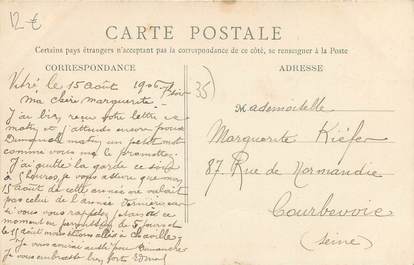 12 €
CARTE POSTALE
Certains pays étrangers n'acceptant pas la correspondance de ce côté, se renseigner à la Poste
CORRESPONDANCE
Vitré le 15 Août 1906 7 soir
ma chère marguerite
J'ai bien reçu votre lettre ce
matin et j'attends encore pour
Dimanche matin un petit mot
comme vous me le promettez.
J'ai quitté la garde ce soir
à 5 heures, je vous assure que mon
15 Août de cette année ne valait
pas celui de l'année dernière car
si vous vous rappelez j'étais à ce
moment en permission de 5 jours et
le 15 août nous étions allés à Chaville
je vous écrirai aussi pour Dimanche
Je vous embrasse bien fort
35
ADRESSE
Mademoiselle
Marguerite Kiéfer
87 Rue de Normandie
Courbevoie
(Seine)